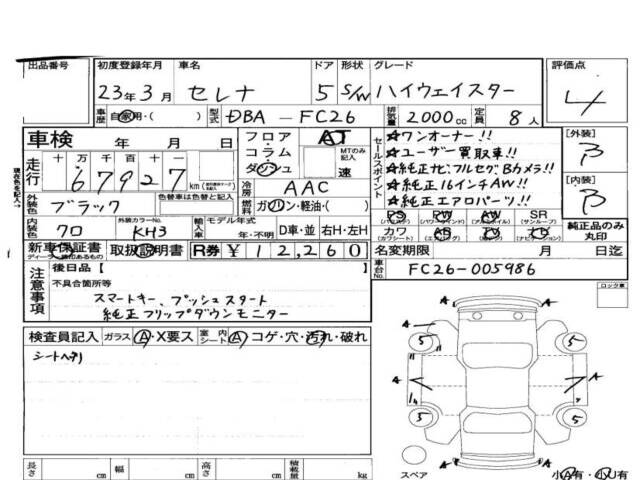 出品番号
初度登録年月 車名 ドア 形状 グレード 評価点
23年3月 セレナ 5 S/W ハイウェイスター 4
車歴 自家用・( ) 型式 DBA-FC26 排気量 2000cc 定員 8人
車検 年 月 日
フロア・コラム・ダッシュ AT MTのみ記入 速
セールスポイント
☆ワンオーナー!!
☆ユーザー買取車!!
☆純正ナビ.フルセグ.Bカメラ!!
☆純正16インチAW!!
☆純正エアロパーツ!!
[外装] B
[内装] B
走行 十 万 千 百 十 一
67927 km
冷房 AAC
現在色を記入→
外装色 ブラック 色替車は色替と記入 燃料 ガソリン・軽油・( )
PS PW AW SR
(パワステ) (パワーウインド) (アルミホイル) (サンルーフ)
カワ AB TV ナビ
(カワシート) (エアバッグ)
純正品のみ丸印
内装色 クロ 外装カラーNo. KH3 輸入車 モデル年式 年・不明 D車・並 右H・左H
新車保証書 取扱説明書 R券 ¥12,260
名変期限 月 日迄
車台No. FC26-005986
注意事項
後日品[ ]
不具合箇所等
スマートキー、プッシュスタート
純正フリップダウンモニター
ロック車
検査員記入 ガラス A・X要ス 室内シート A コゲ・穴・汚れ・破れ
シートヘタリ
A A
5 5
A A
5 5
A A
スペア
長さ cm 幅 cm 高さ cm 積載量 kg
小A有・小U有